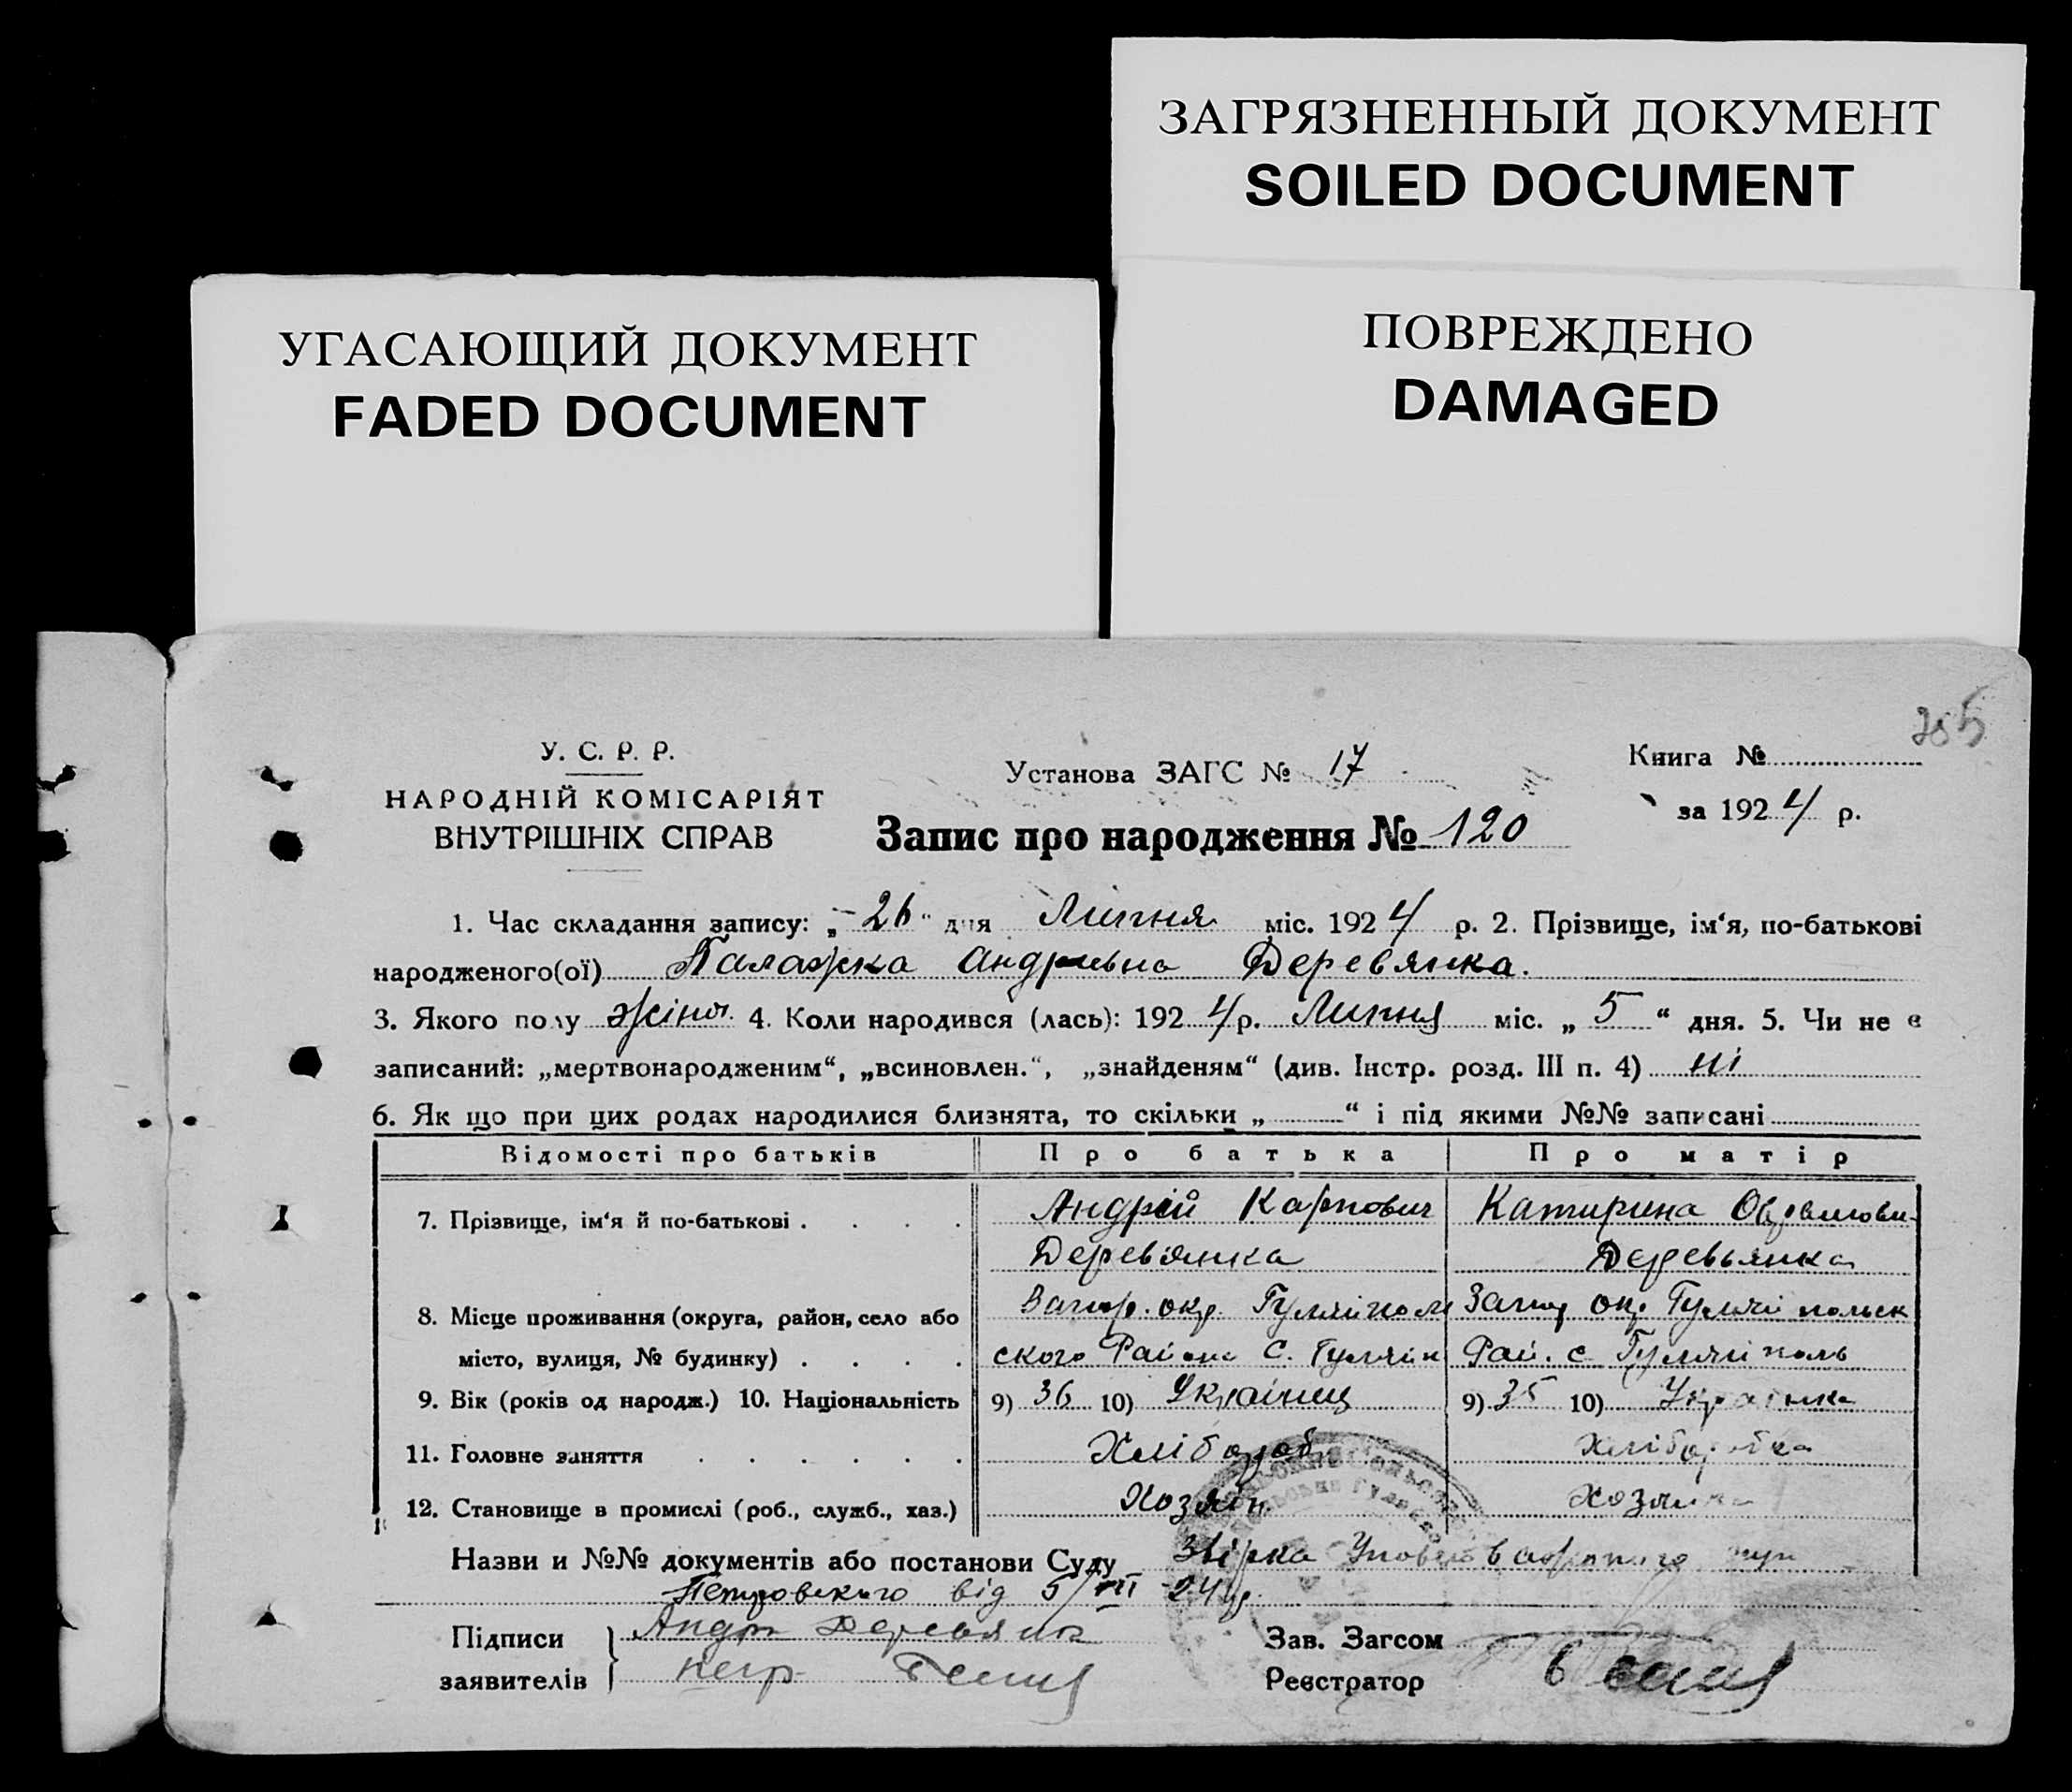 ЗАГРЯЗНЕННЫЙ ДОКУМЕНТ
SOILED DOCUMENT
УГАСАЮЩИЙ ДОКУМЕНТ
FADED DOCUMENT
ПОВРЕЖДЕНО
DAMAGED
285
У. С. Р. Р.
НАРОДНІЙ КОМІСАРІЯТ
ВНУТРІШНІХ СПРАВ
Установа ЗАГС № 17
Запис про народження № 120
Книга №
за 1924 р.
1. Час складання запису: „26“ дня Липня міс. 1924 р. 2. Прізвище, ім‘я, по-батькові
народженого(ої) Палажка Андріевна Деревянка.
3. Якого полу жіноч. 4. Коли народився (лась): 1924 р. Липня міс. „5“ дня. 5. Чи не є
записаний: „мертвонародженим“, „всиновлен.“, „знайденям“ (див. Інстр. розд. III п. 4) ні
6. Як що при цих родах народилися близнята, то скільки „ “ і під якими №№ записані
Відомості про батьків Про батька Про матір
7. Прізвище, ім‘я й по-батькові . . . . Андрій Карпович Катирина
Деревянка Деревьянка
8. Місце проживання (округа, район, село або Запор. окр. Гуляйполь Запор окр Гуляйпольск
місто, вулиця, № будинку) . . . . ского Района С. Гуляйп Рай. с Гуляйполь
9. Вік (років од народж.) 10. Національність 9) 36 10) Українец 9) 35 10) Українка
11. Головне заняття . . . . . . Хлібороб Хліборобка
12. Становище в промислі (роб., служб., хаз.) Хозяін Хозяйка
Назви и №№ документів або постанови Суду
Петровского від 5/VII 24 р
Підписи Андрій Деревянк
заявителів
Зав. Загсом
Реєстратор